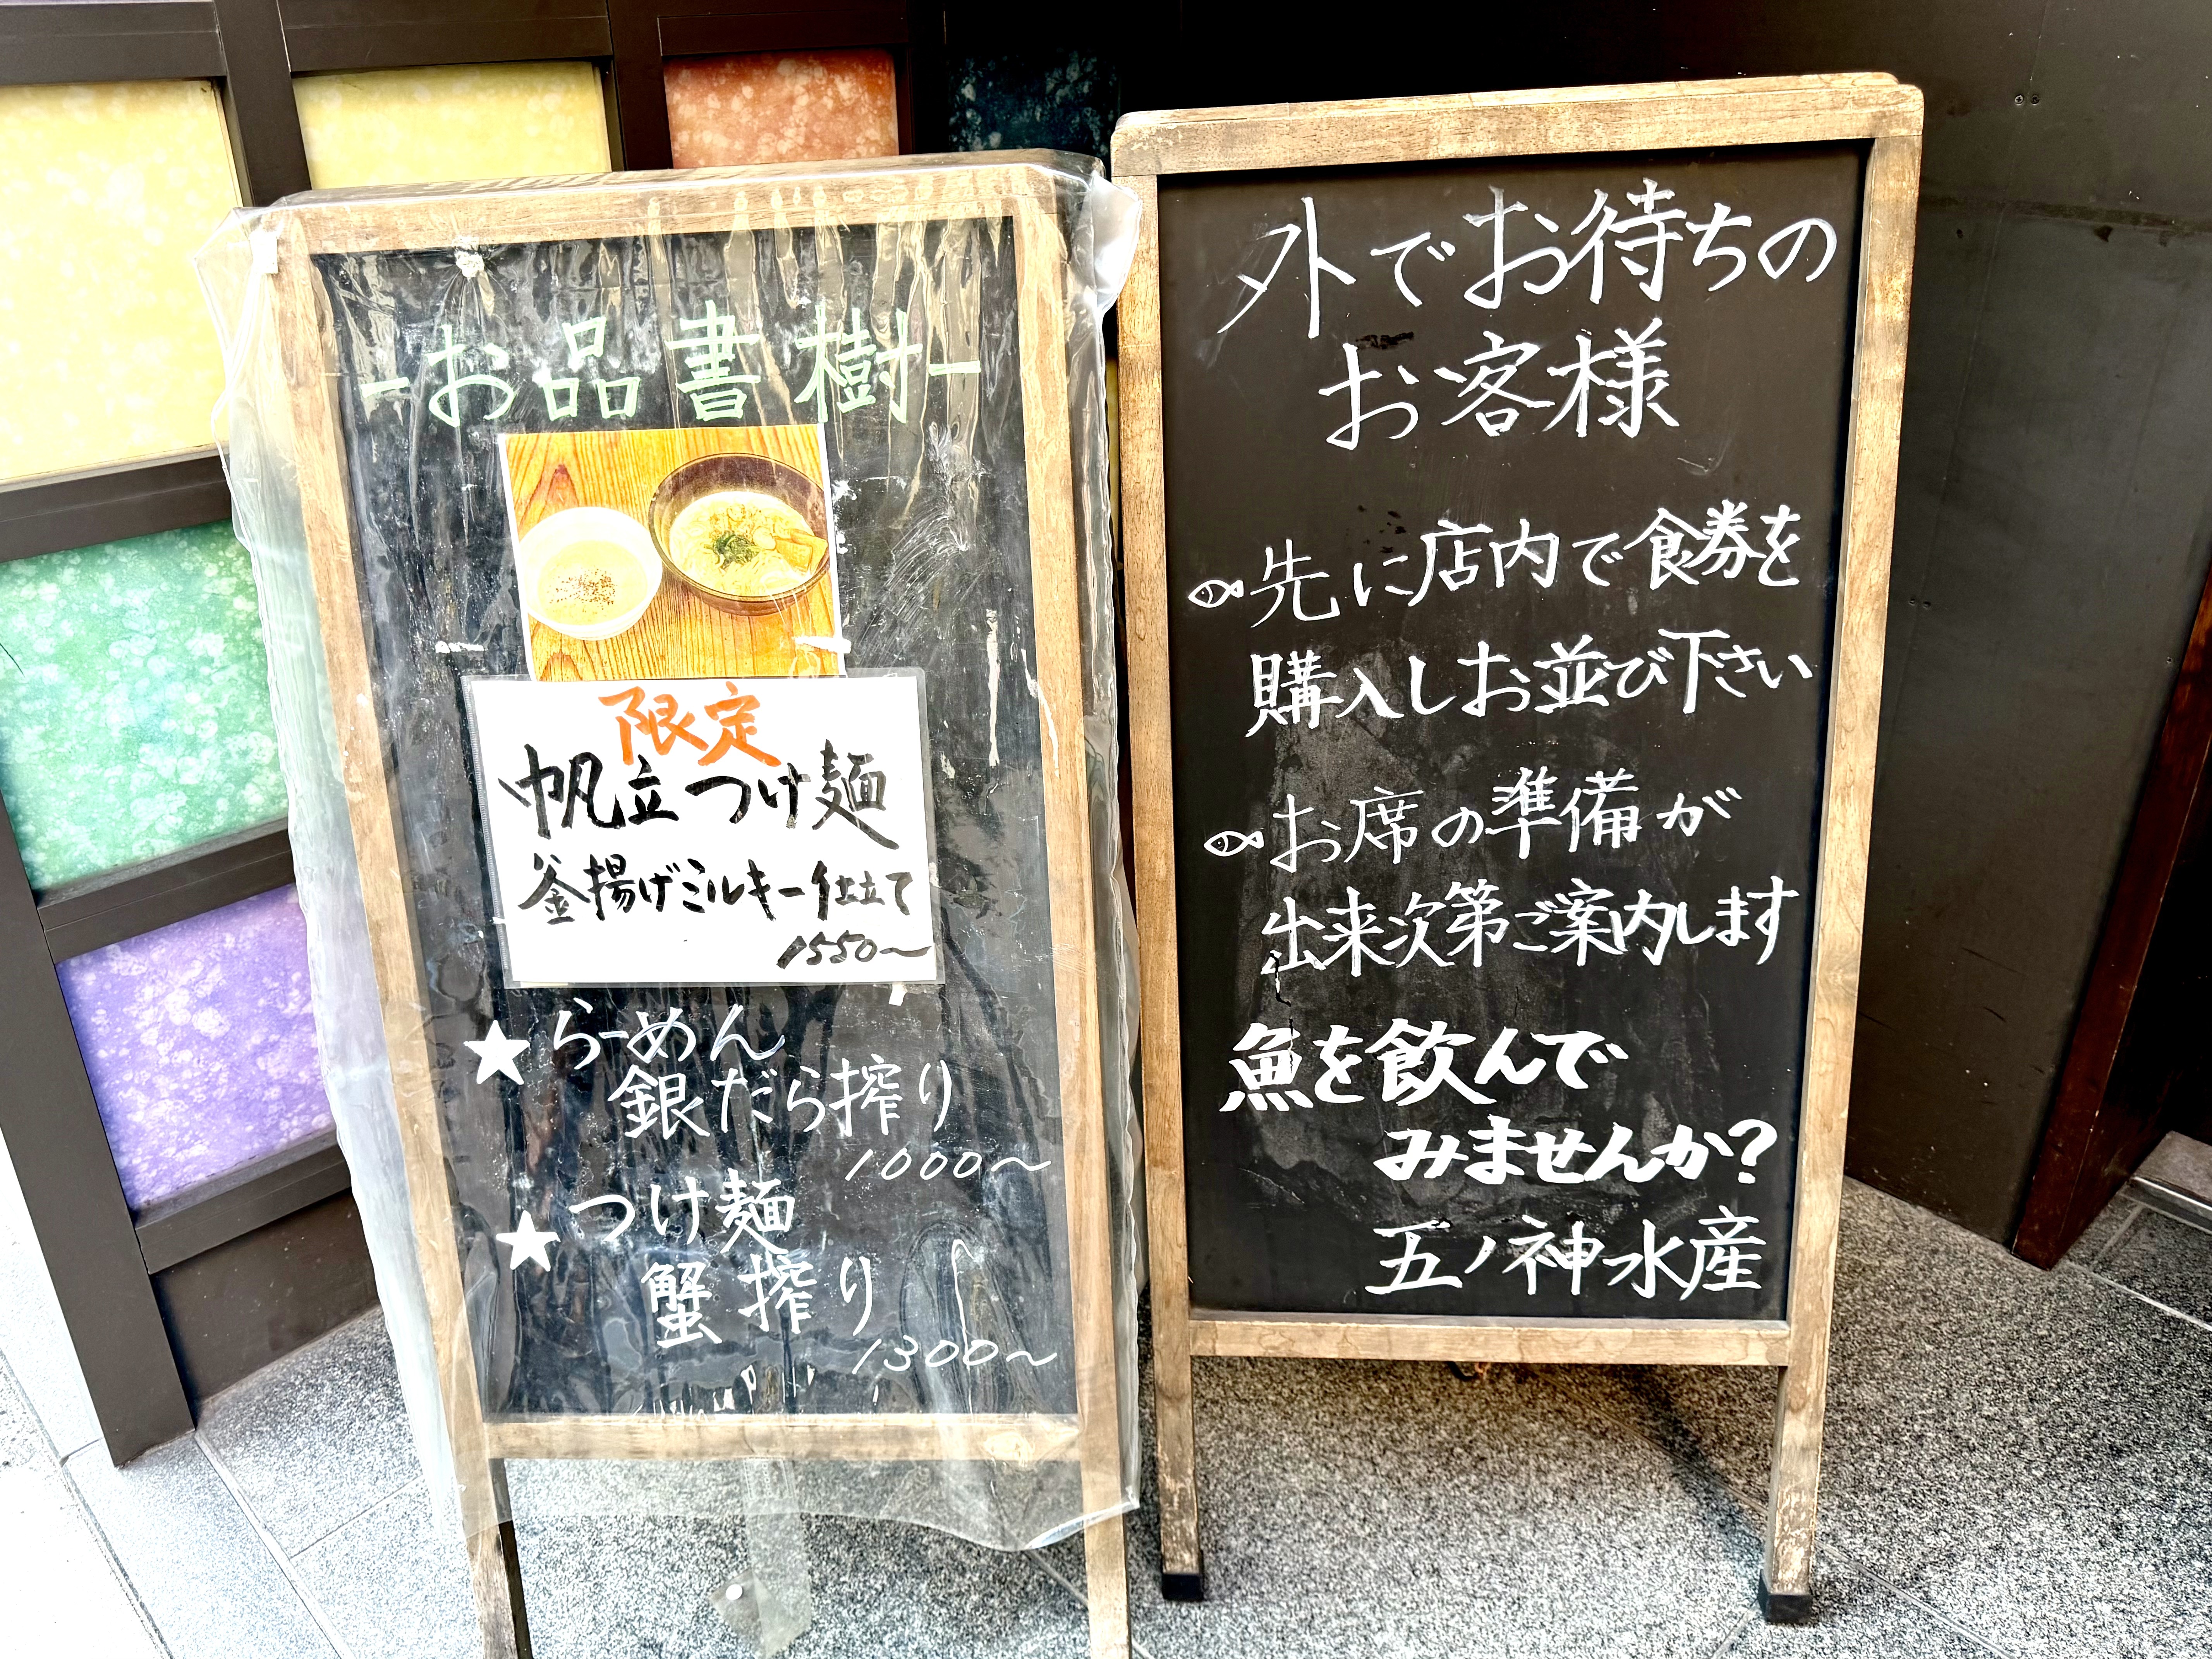 -お品書樹-
限定
帆立つけ麺
釜揚げミルキー仕立て
1550〜
★らーめん
銀だら搾り
1000〜
★つけ麺
蟹搾り
1300〜
外でお待ちの
お客様
先に店内で食券を
購入しお並び下さい
お席の準備が
出来次第ご案内します
魚を飲んで
みませんか?
五ノ神水産